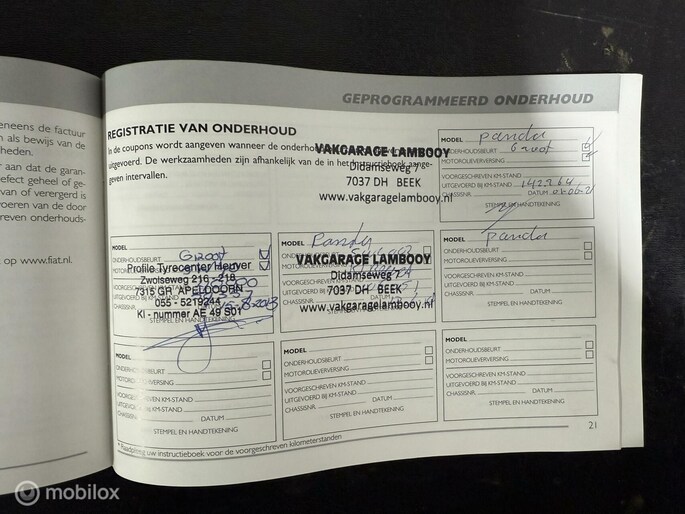 eneens de factuur
n als bewijs van de
heden.
er aan dat de garan-
efect geheel of ge-
van of verergerd is
voeren van de door
reven onderhouds-
op www.fiat.nl.
GEPROGRAMMEERD ONDERHOUD
REGISTRATIE VAN ONDERHOUD
In de coupons wordt aangeven wanneer de onderhoud
uitgevoerd. De werkzaamheden zijn afhankelijk van de in het Instructieboek aange-
geven intervallen.
VAKGARAGE LAMBOOY
Didamseweg 7
7037 DH BEEK
www.vakgaragelambooy.nl
MODEL panda
ONDERHOUDSBEURT Groot
MOTOROLIEVERVERSING
VOORGESCHREVEN KM-STAND
UITGEVOERD BIJ KM-STAND
CHASSISNR. DATUM
STEMPEL EN HANDTEKENING
MODEL
Groot
Profile Tyrecenter Heuver
Zwolseweg 216 - 218
7315 GR APELDOORN
055 - 5219244
KI - nummer AE 49 S01
STEMPEL EN HANDTEKENING
MODEL Panda
VAKGARAGE LAMBOOY
Didamseweg 7
7037 DH BEEK
www.vakgaragelambooy.nl
STEMPEL EN HANDTEKENING
MODEL panda
ONDERHOUDSBEURT
MOTOROLIEVERVERSING
VOORGESCHREVEN KM-STAND
UITGEVOERD BIJ KM-STAND
CHASSISNR. DATUM
STEMPEL EN HANDTEKENING
MODEL
ONDERHOUDSBEURT
MOTOROLIEVERVERSING
VOORGESCHREVEN KM-STAND
UITGEVOERD BIJ KM-STAND
CHASSISNR. DATUM
STEMPEL EN HANDTEKENING
MODEL
ONDERHOUDSBEURT
MOTOROLIEVERVERSING
VOORGESCHREVEN KM-STAND
UITGEVOERD BIJ KM-STAND
CHASSISNR. DATUM
STEMPEL EN HANDTEKENING
MODEL
ONDERHOUDSBEURT
MOTOROLIEVERVERSING
VOORGESCHREVEN KM-STAND
UITGEVOERD BIJ KM-STAND
CHASSISNR. DATUM
STEMPEL EN HANDTEKENING
* Raadpleeg uw instructieboek voor de voorgeschreven kilometerstanden
21
mobilox